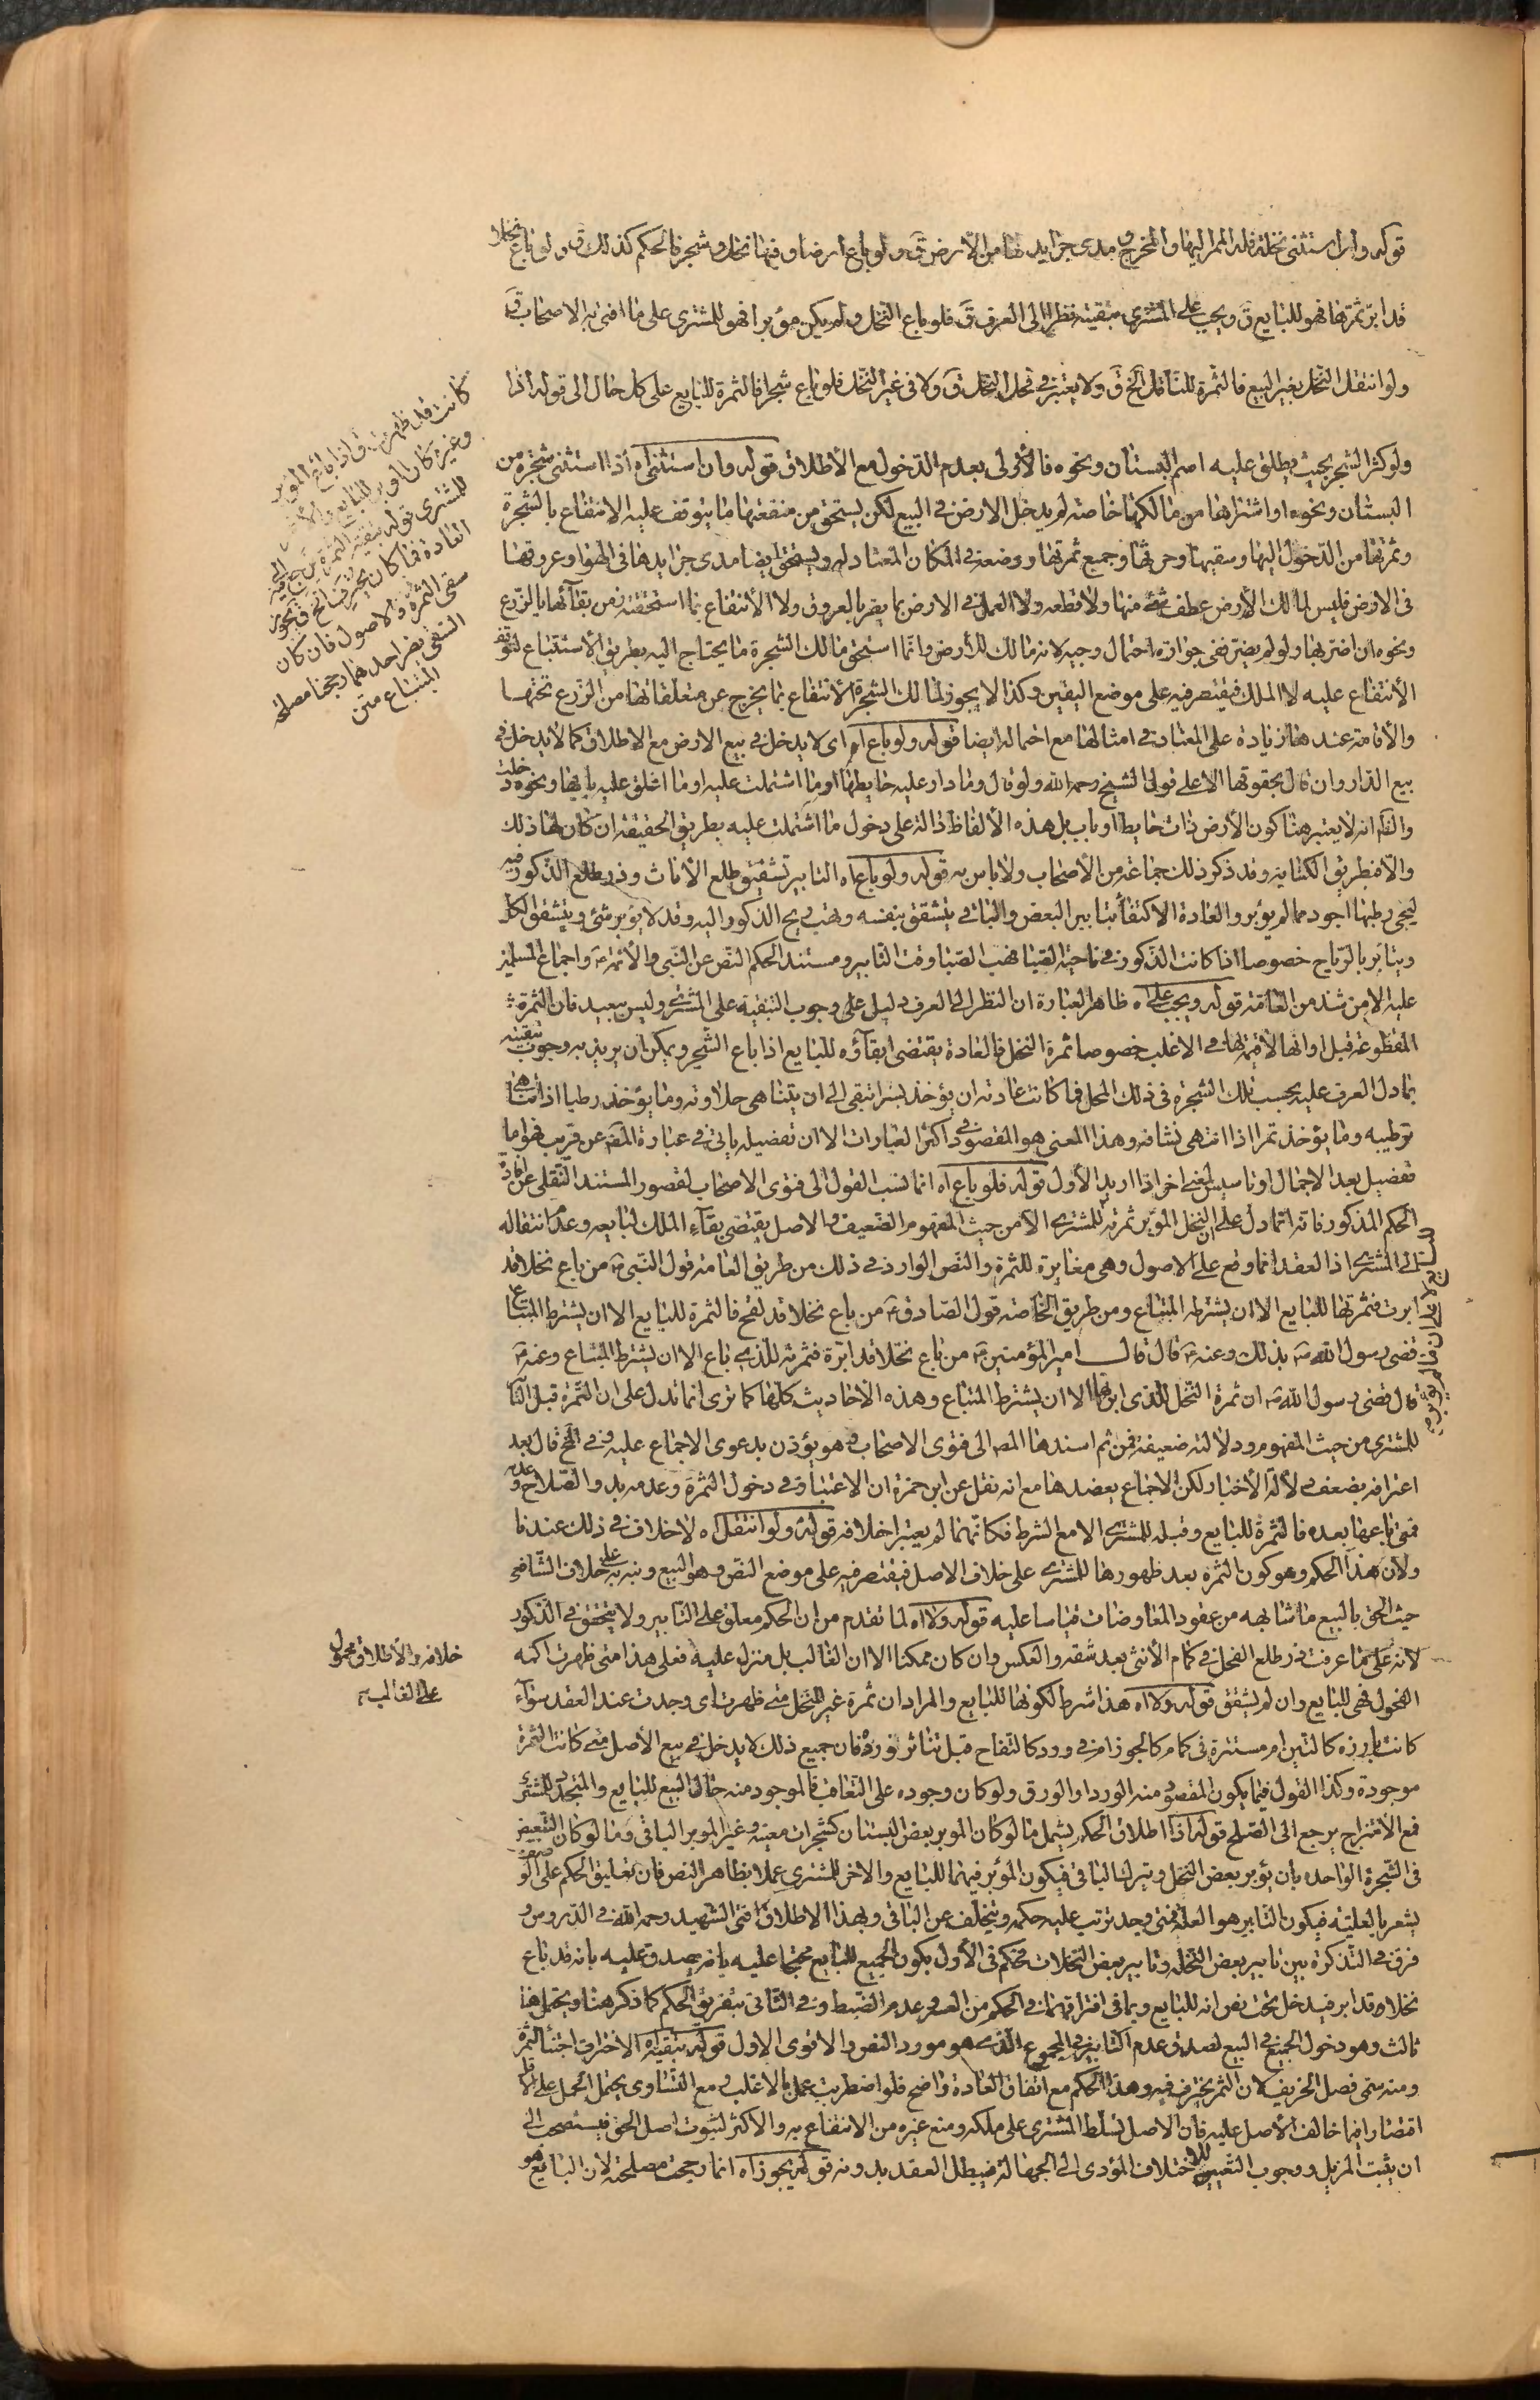 قوله وان استثنى نخلة فله الممر اليها والمخرج ومدى جرايدها من الأرض ق ولو باع ارضا وفيها نخل وشجر فالحكم كذلك ق ولو باع نخلا
قد ابر ثمرتها فهو للبايع ق ويجب على المشترى تبقيته نظرا الى العرف ق فلو باع النخل ولم يكن مؤبرا فهو للمشترى على ما افتى به الاصحاب ق
ولو انتقل النخل بغير البيع فالثمرة للناقل الخ ق ولا يعتبر فى فحل النخل ق ولا فى غير النخل فلو باع شجرا فالثمرة للبايع على كل حال الى قوله اذا
كانت قد ظهرت ق اذا باع المؤبر
وغيره كان المؤبر للبايع والآخر
للمشترى قوله تبقية الثمرة يرجع فيه الى
العادة فما كان يخترف الخ ق يجوز
سقى الثمرة والاصول فان كان
السقى يضر احدهما رجحنا مصلحة
المبتاع متن
ولو كثر الشجر بحيث يطلق عليه اسم البستان ونحوه فالأولى بعدم الدخول مع الأطلاق قوله وان استثنى اه اذا استثنى شجرة من
البستان ونحوه او اشتراها من مالكها خاصة لم يدخل الارض فى البيع لكن يستحق من منفعتها ما يتوقف عليه الانتفاع بالشجرة
وثمرتها من الدخول اليها وسقيها وحرثها وجميع ثمرتها ووضعه فى المكان المعتاد له ويستحق ايضا مدى جرايدها فى الهواء وعروقها
فى الارض فليس لمالك الأرض عطف شئ منها ولا قطعه ولا العمل فى الارض بما يضر بالعروق ولا الأنتفاع بما استحقته من بقائها بالزرع
ونحوه ان اضر بها ولو لم يضر ففى جوازه احتمال وجيه لانه مالك للأرض وانما استحق مالك الشجرة ما يحتاج اليه بطريق الاستتباع لتوقف
الأنتفاع عليه لا الملك فيقتصر فيه على موضع اليقين وكذا لا يجوز لمالك الشجرة الأنتفاع بما يخرج عن متعلقاتها من الزرع تحتها
والأقامة عندها زيادة على المعتاد فى امثالها مع احتماله ايضا قوله ولو باع اه اى لا يدخل فى بيع الارض مع الاطلاق كما لا يدخل فى
بيع الدار وان قال بحقوقها الا على قول الشيخ رحمه الله ولو قال وما دار عليه حايطها او ما اشتملت عليه او ما اغلق عليه بابها ونحوه دخلت
والظاهر انه لا يعتبر هنا كون الأرض ذات حايط او باب بل هذه الألفاظ دالة على دخول ما اشتملت عليه بطريق الحقيقة ان كان لها ذلك
والا فبطريق الكناية وقد ذكر ذلك جماعة من الأصحاب ولا باس به قوله ولو باع اه التابير تشقيق طلع الأناث وذر طلع الذكور فيه
ليجئ رطبها اجود مما لم يؤبر والعادة الاكتفاء بتابير البعض والباقى يتشقق بنفسه وتهب ريح الذكور اليه وقد لا يؤبر شئ ويتشقق الكل
ويتابر بالرياح خصوصا اذا كانت الذكور فى ناحية الصبا فهب الصبا وقت التابير ومستند الحكم النص عن النبى والأئمة ع واجماع المسلمين
عليه الا من شذ من العامة قوله ويجب على اه ظاهر العبارة ان النظر الى العرف دليل على وجوب التبقية على المشترى وليس ببعيد فان الثمرة
المقطوعة قبل اوانها لا قيمة لها فى الاغلب خصوصا ثمرة النخل فالعادة يقتضى ابقاؤه للبايع اذا باع الشجر ويمكن ان يريد به وجوب تبقيته
بما دل العرف عليه بحسب تلك الشجرة فى ذلك المحل فما كانت عادته ان يؤخذ بسرا تبقى الى ان يتناهى حلاوته وما يؤخذ رطبا اذا تناهى
ترطيبه وما يؤخذ تمرا اذا انتهى نشافه وهذا المعنى هو المقصود فى اكثر العبارات الا ان تفصيله ياتى فى عبارة المصنف عن قريب فهو اما
تفصيل بعد الاجمال او تاسيس لمعنى اخر اذا اريد الأول قوله فلو باع اه انما نسب القول الى فتوى الاصحاب لقصور المستند النقلى عن افادة
الحكم المذكور فانه انما دل على ان النخل المؤبر ثمرته للمشترى الا من حيث المفهوم الضعيف والاصل يقتضى بقاء الملك لبايعه وعدم انتقاله
الى المشترى اذ العقد انما وقع على الاصول وهى مغايرة للثمرة والنص الوارد فى ذلك من طريق العامة قول النبى ص من باع نخلا قد
ابرت فثمرتها للبايع الا ان يشترطه المبتاع ومن طريق الخاصة قول الصادق ع من باع نخلا قد لقح فالثمرة للبايع الا ان يشترط المبتاع
قضى رسول الله ص بذلك وعنه ع قال قال امير المؤمنين ع من باع نخلا قد ابره فثمرته للذى باع الا ان يشترط المبتاع وعنه ع
قال قضى رسول الله ص ان ثمرة النخل للذى ابرها الا ان يشترط المبتاع وهذه الأحاديث كلها كما ترى انما تدل على ان الثمرة قبل التا
للمشترى من حيث المفهوم ودلالته ضعيفة فمن ثم اسندها المصنف الى فتوى الاصحاب وهو يؤذن بدعوى الاجماع عليه وفى الخ قال بعد
اعترافه بضعف دلالة الأخبار ولكن الاجماع يعضدها مع انه نقل عن ابن حمزة ان الاعتبار فى دخول الثمرة وعدمه بدو الصلاح وعدمه
فمتى باعها بعده فالثمرة للبايع وقبله للمشترى الا مع الشرط فكانهما لم يعتبرا خلافه قوله ولو انتقل اه لا خلاف فى ذلك عندنا
ولأن هذا الحكم وهو كون الثمرة بعد ظهورها للمشترى على خلاف الاصل فيقتصر فيه على موضع النص وهو البيع ونبه به على خلاف الشافعى
حيث الحق بالبيع ما شابهه من عقود المعاوضات قياسا عليه قوله ولا اه لما تقدم من ان الحكم معلق على التابير ولا يتحقق فى الذكور
لأنه على ما عرفت ذر طلع الفحل فى كمام الأنثى بعد شقه والعكس وان كان ممكنا الا ان الغالب بل منزل عليه فعلى هذا متى ظهرت اكمة
خلافه والأطلاق محمول
على الغالب
الفحول فهى للبايع وان لم يتشقق قوله ولا اه هذا شرط لكونها للبايع والمراد ان ثمرة غير النخل متى ظهرت اى وجدت عند العقد سواء
كانت بارزه كالتين ام مستترة فى كمام كالجوز ام فى ورد كالتفاح قبل تناثر نوره فان جميع ذلك لا يدخل فى بيع الأصل متى كانت الثمرة
موجودة وكذا القول فيما يكون المقصود منه الورد او الورق ولو كان وجوده على التعاقب فالموجود منه حال البيع للبايع والمتجدد للمشترى
فمع الأمتزاج يرجع الى الصلح قوله اذا اطلاق الحكم يشمل ما لو كان المؤبر بعض البستان كشجرات معينة وغير المؤبر الباقى وما لو كان التبعيض
فى الشجرة الواحده بان يؤبر بعض النخل ويترك الباقى فيكون المؤبر فيهما للبايع والآخر للمشترى عملا بظاهر النص فان تعليق الحكم على الوصف
يشعر بالعلية فيكون التابير هو العلة فمتى وجد ترتب عليه حكمه ويتخلف عن الباقى وبهذا الاطلاق افتى الشهيد رحمه الله فى الدروس و
فرق فى التذكرة بين تابير بعض النخلة وتابير بعض النخلات فحكم فى الأول بكون الجميع للبايع محتجا عليه بانه يصدق عليه بانه قد باع
نخلا قد ابر فيدخل تحت نص انه للبايع وبما فى افتراقهما فى الحكم من العسر وعدم الضبط وفى الثانى بتفريق الحكم كما ذكر هنا ويحتمل هنا
ثالث وهو دخول الجميع فى البيع لصدق عدم التابير فى المجموع الذى هو مورد النص والاقوى الاول قوله تبقية اه الاختراف اجتناء الثمرة
ومنه سمى فصل الخريف لان الثمر يخترف فيه وهذا الحكم مع اتفاق العادة واضح فلو اضطربت عمل بالاغلب ومع التساوى يحتمل الحمل على الاقل
اقتصارا فيما خالف الأصل عليه فان الاصل تسلط المشترى على ملكه ومنع غيره من الانتفاع به والاكثر لثبوت اصل الحق فيستصحب الى
ان يثبت المزيل ووجوب التعيين للاختلاف المؤدى الى الجهالة فيبطل العقد بدونه قوله يجوز اه انما رجحت مصلحته لان البايع هو